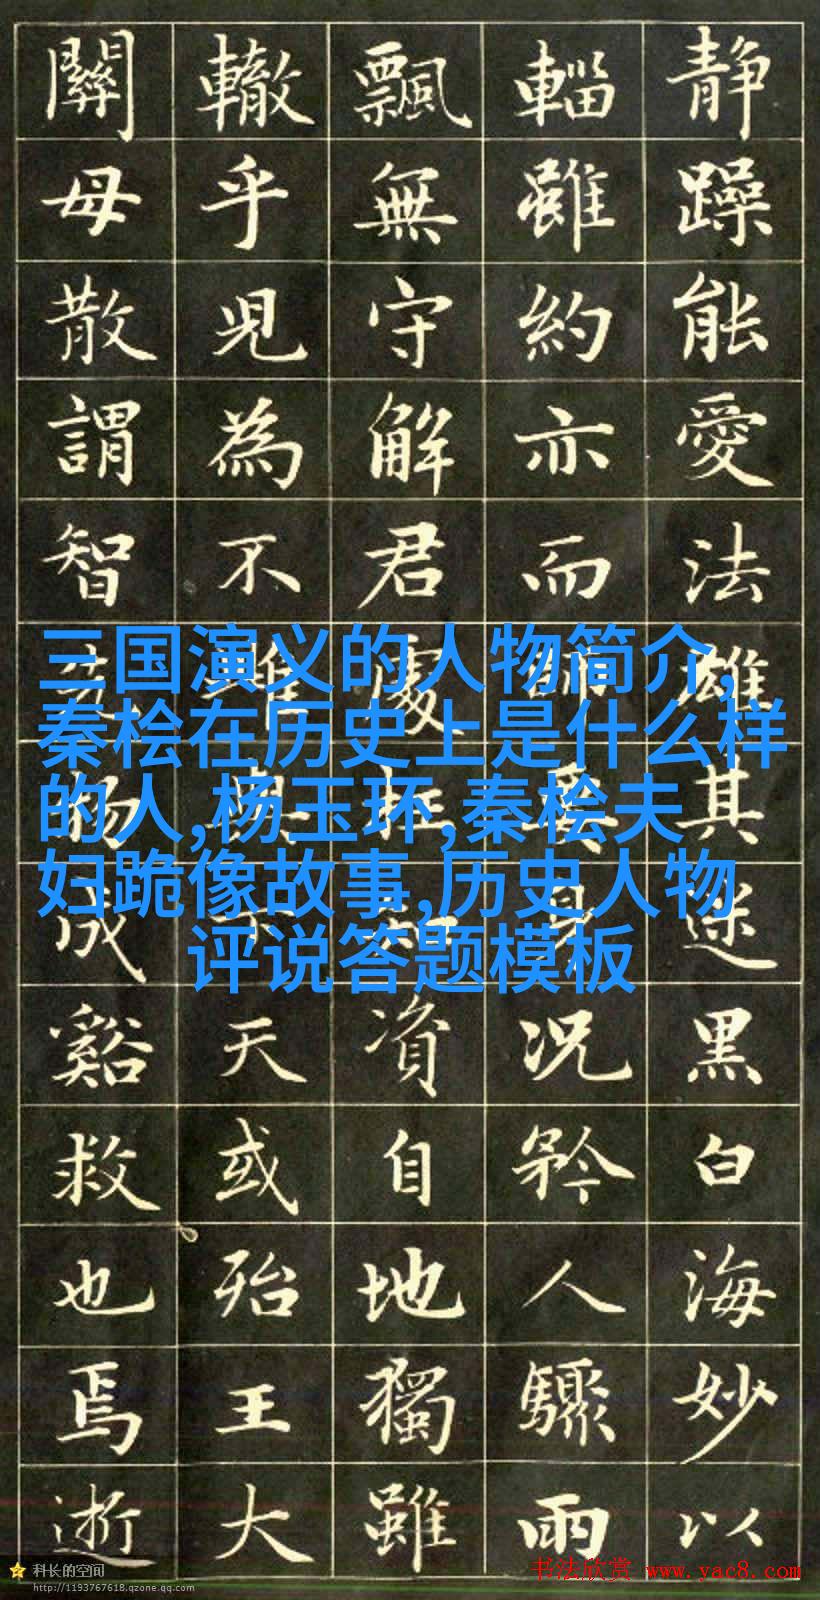 静躁能愛法雄其迷黑白海妙以
輜雖約亦而身况矜人驟雨
飄無守解君處資自地獨雖
轍乎児為不天或殆王大
關母散謂智物成谿救也焉逝
三国演义的人物简介,
秦桧在历史上是什么样
的人,杨玉环,秦桧夫
妇跪像故事,历史人物
评说答题模板
科长的空间
http://1193767618.qzone.qq.com
书法欣赏 www.yac8.com